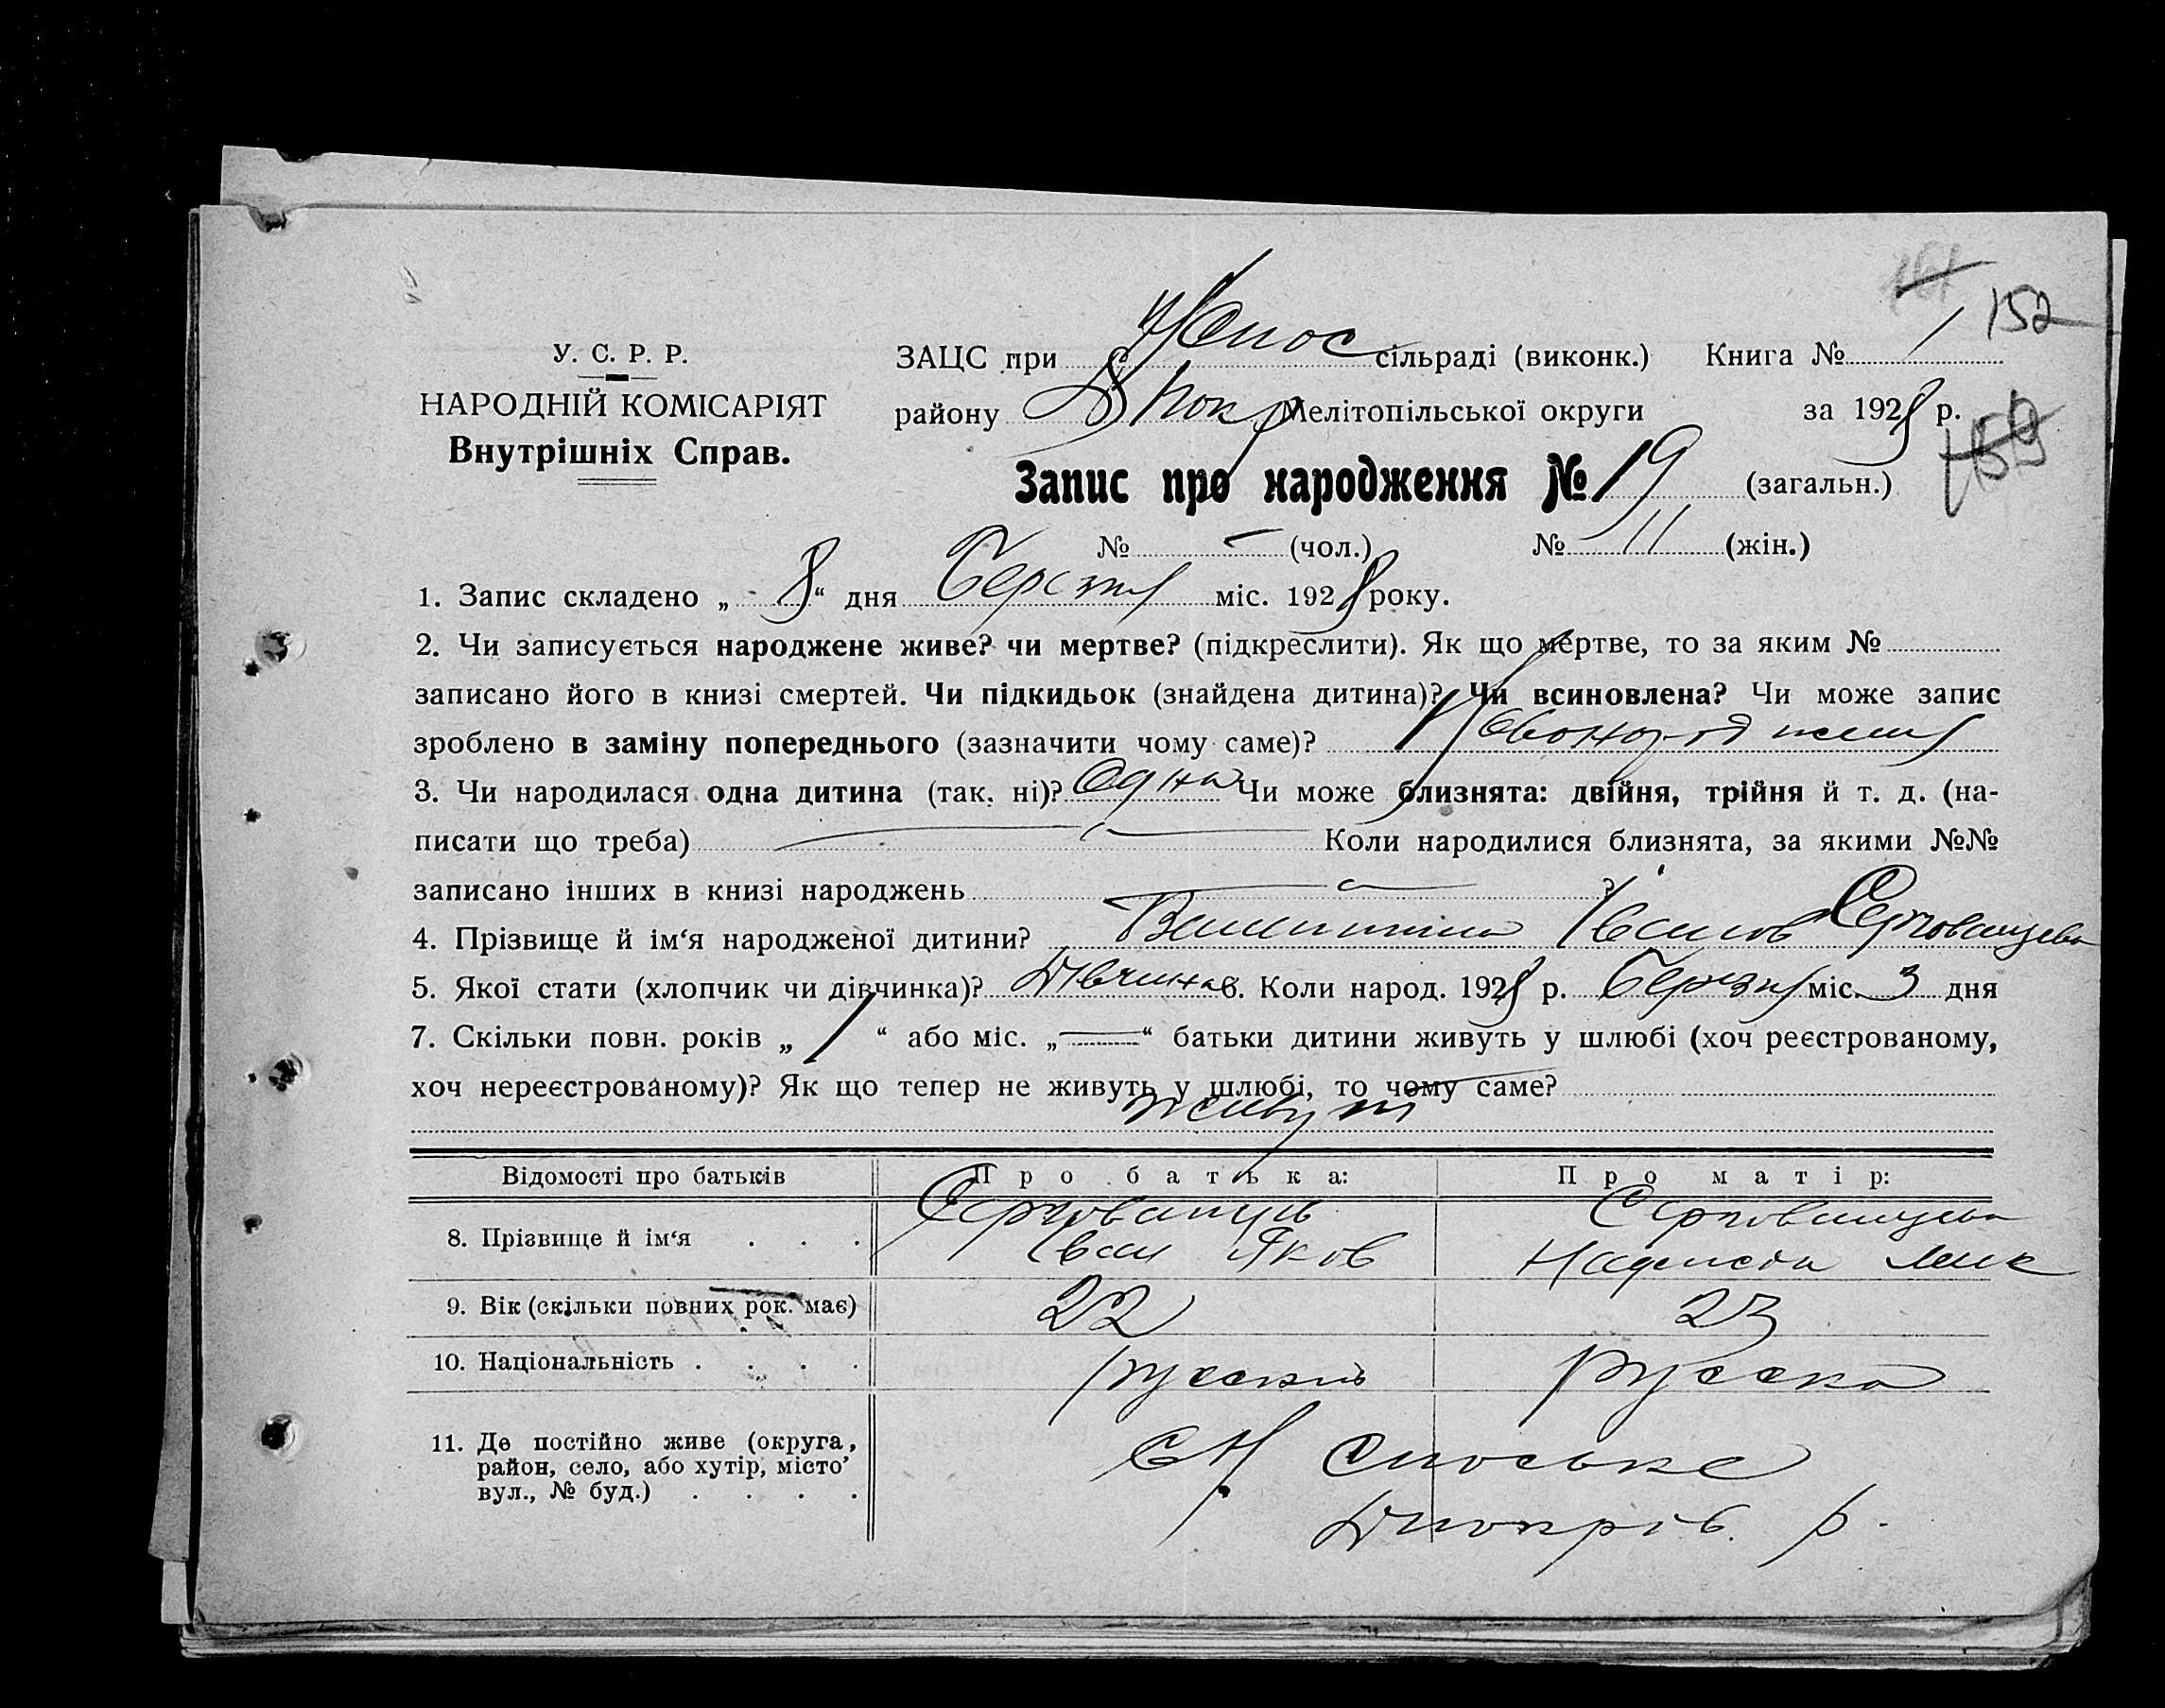 152
У. С. Р. Р.
НАРОДНІЙ КОМІСАРІЯТ
Внутрішніх Справ.
ЗАЦС при сільраді (виконк.) Книга № 1
району Мелітопільської округи за 1928 р.
159
Запис про народження № 19 (загальн.)
№ - (чол.) № 11 (жін.)
1. Запис складено „ 8 “ дня міс. 1928 року.
2. Чи записується народжене живе? чи мертве? (підкреслити). Як що мертве, то за яким №
записано його в книзі смертей. Чи підкидьок (знайдена дитина)? Чи всиновлена? Чи може запис
зроблено в заміну попереднього (зазначити чому саме)?
3. Чи народилася одна дитина (так, ні)? Одна Чи може близнята: двійня, трійня й т. д. (на-
писати що треба) Коли народилися близнята, за якими №№
записано інших в книзі народжень ?
4. Прізвище й ім‘я народженої дитини? Валентина Іванов
5. Якої стати (хлопчик чи дівчинка)? Дівчинка 6. Коли народ. 1928 р. Березня міс. 3 дня
7. Скільки повн. років „ 1 “ або міс. „ — “ батьки дитини живуть у шлюбі (хоч реєстрованому,
хоч нереєстрованому)? Як що тепер не живуть у шлюбі, то чому саме?
живут
Відомості про батьків Про батька: Про матір:
8. Прізвище й ім‘я . . .
Іван Яков
9. Вік (скільки повних рок. має) 22 23
10. Національність . . . . русский русска
11. Де постійно живе (округа,
район, село, або хутір, місто
вул., № буд.) . . . .